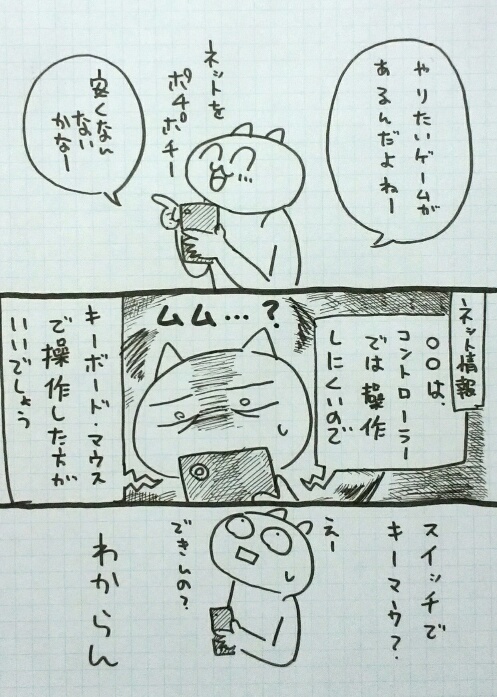 やりたいゲームが
あるんだよねー
ネットを
ポチポチー
安くなん
ないかなー
ネット情報
〇〇は、
コントローラー
では操作
しにくいので
ムム…?
キーボード・マウス
で操作した方が
いいでしょう
スイッチで
キーマウ?
えー
できんの?
わからん